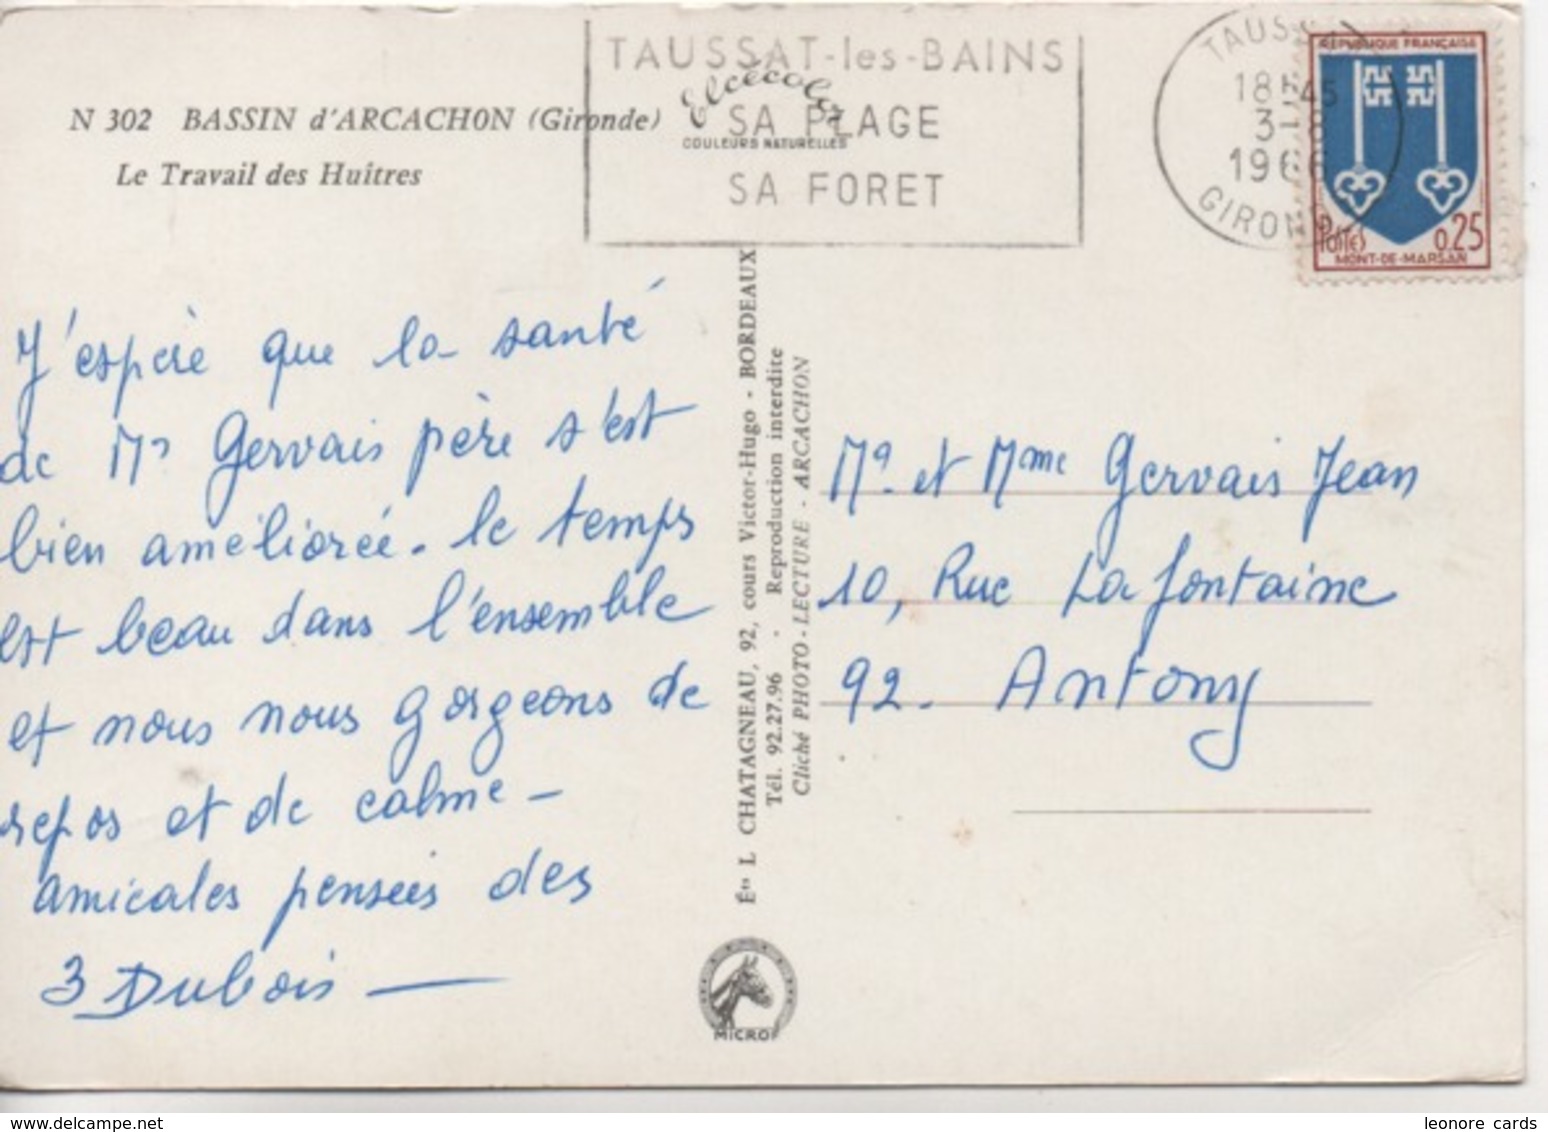 TAUSSAT-les-BAINS
SA PLAGE
SA FORET
18H45
3-8
1966
GIRONDE
REPUBLIQUE FRANÇAISE
Postes 0.25
MONT-DE-MARSAN
N 302 BASSIN d'ARCACHON (Gironde)
Le Travail des Huîtres
Elcécolor
COULEURS NATURELLES
J'espère que la santé
de Mr Gervais père s'est
bien améliorée. le temps
est beau dans l'ensemble
et nous nous gorgeons de
repos et de calme -
amicales pensées des
3 Dubois -
Éts L CHATAGNEAU, 92, cours Victor-Hugo - BORDEAUX
Tél. 92.27.96 - Reproduction interdite
Cliché PHOTO-LECTURE - ARCACHON
Mr et Mme Gervais Jean
10, Rue La fontaine
92. Antony
leonore cards